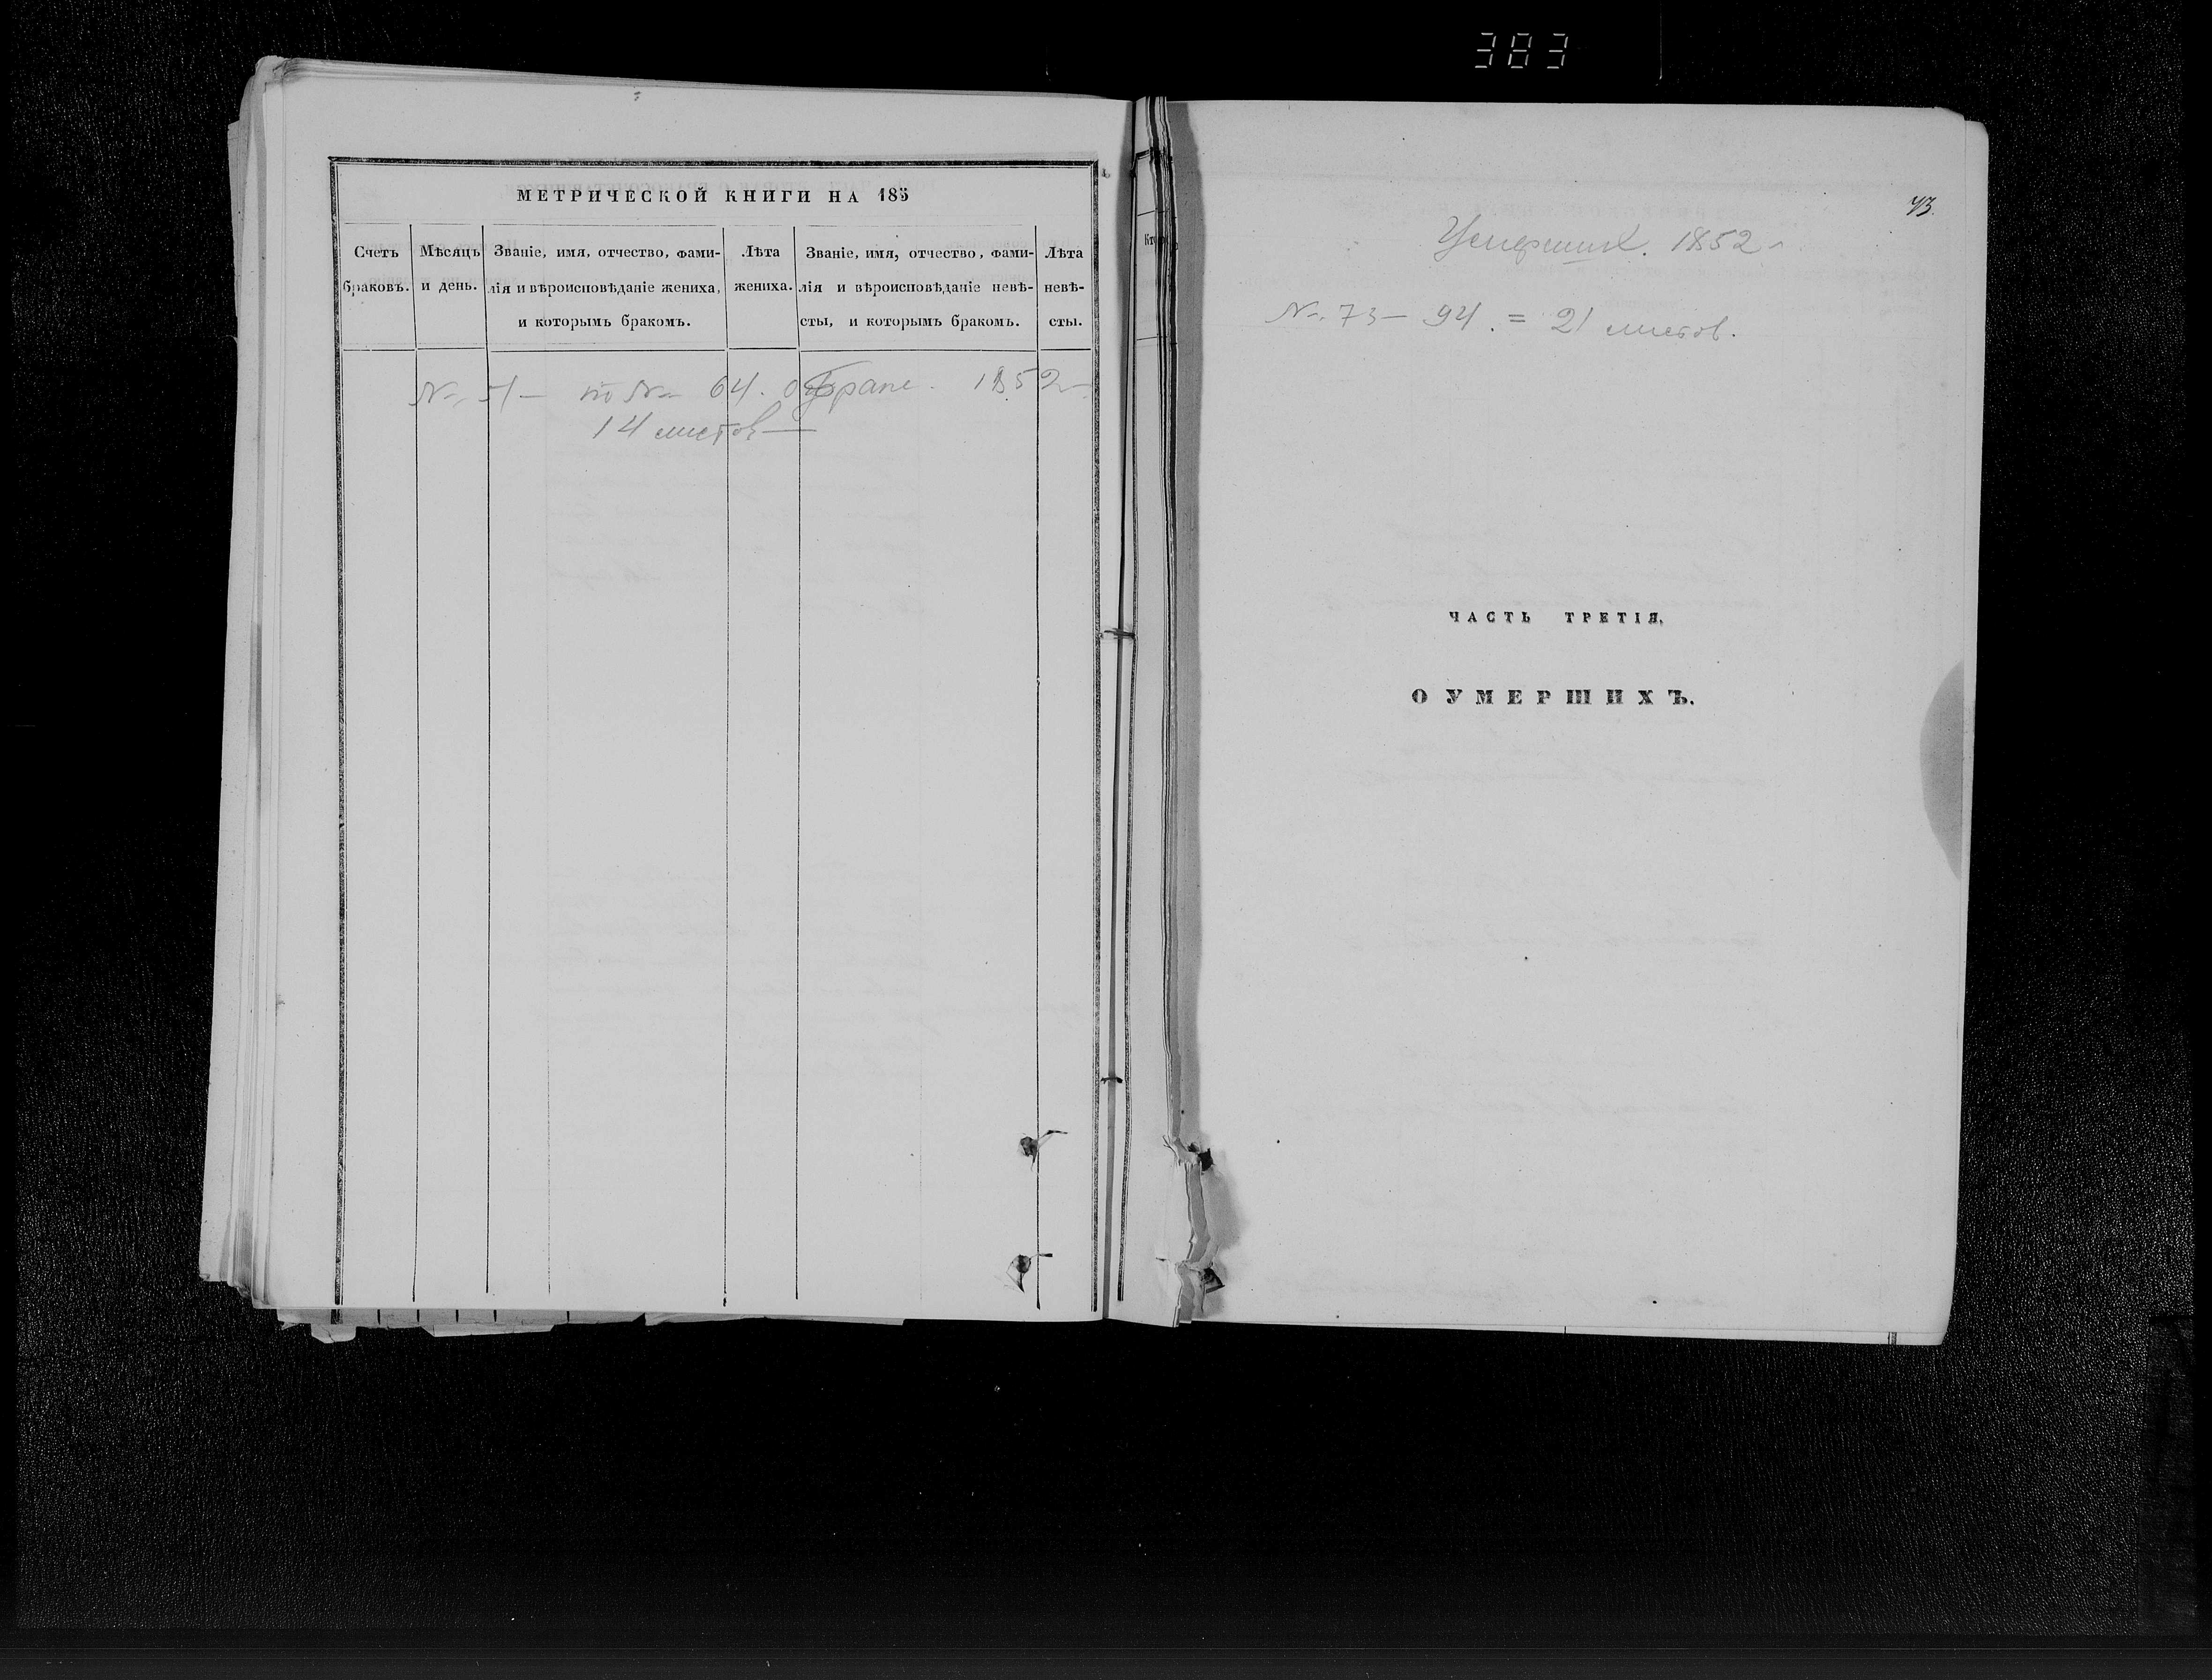 383
МЕТРИЧЕСКОЙ КНИГИ НА 185
Счетъ браковъ.
Мѣсяцъ и день.
Званіе, имя, отчество, фами-
лія и вѣроисповѣданіе жениха,
и которымъ бракомъ.
Лѣта жениха.
Званіе, имя, отчество, фами-
лія и вѣроисповѣданіе невѣ-
сты, и которымъ бракомъ.
Лѣта невѣ-
сты.
по № 64. о 1852
14 листов
73.
Умерших. 1852
№ 73 — 94. = 21 листов.
ЧАСТЬ ТРЕТІЯ.
О УМЕРШИХЪ.